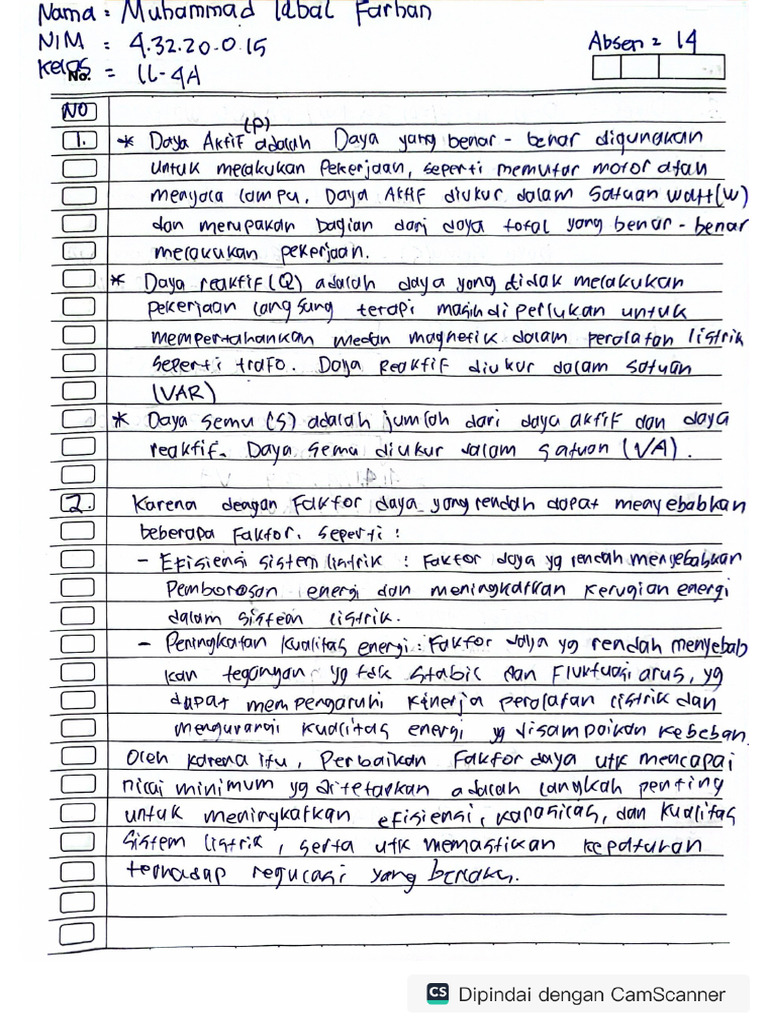 Nama : Muhammad Iqbal Farhan
NIM : 4.32.20.0.15
Absen = 14
Kelas = LL-4A
No.
NO
1. * Daya Aktif (P) adalah Daya yang benar - benar digunakan
untuk melakukan pekerjaan, seperti memutar motor atau
menyala lampu. Daya Aktif diukur dalam satuan watt (W)
dan merupakan bagian dari daya total yang benar - benar
melakukan pekerjaan.
* Daya reaktif (Q) adalah daya yang tidak melakukan
pekerjaan langsung tetapi masih diperlukan untuk
mempertahankan medan magnetik dalam peralatan listrik
seperti trafo. Daya Reaktif diukur dalam satuan
(VAR)
* Daya semu (S) adalah jumlah dari daya aktif dan daya
reaktif. Daya semu diukur dalam satuan (VA).
2. Karena dengan Faktor daya yang rendah dapat menyebabkan
beberapa Faktor. seperti :
- Efisiensi sistem listrik : Faktor daya yg rendah menyebabkan
Pemborosan energi dan meningkatkan kerugian energi
dalam sistem listrik.
- Peningkatan kualitas energi : Faktor daya yg rendah menyebab
kan tegangan yg tdk stabil dan Fluktuasi arus, yg
dapat mempengaruhi kinerja peralatan listrik dan
mengurangi kualitas energi yg disampaikan kebeban.
Oleh karena itu, Perbaikan Faktor daya utk mencapai
nilai minimum yg ditetapkan adalah langkah penting
untuk meningkatkan efisiensi, kapasitas, dan kualitas
sistem listrik, serta utk memastikan kepatuhan
terhadap regulasi yang berlaku.
CS Dipindai dengan CamScanner